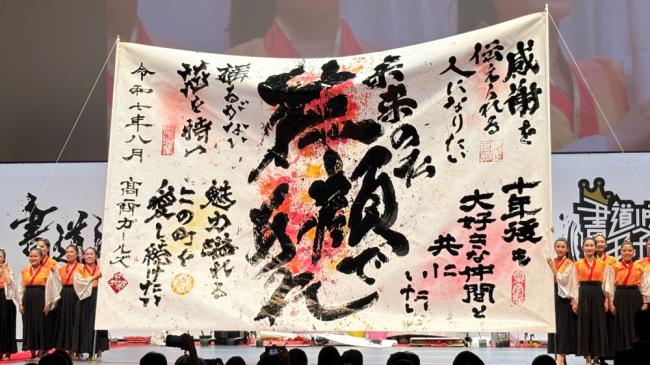 感謝を
伝えられる
人になりたい
十年後も
大好きな仲間と
共に
いたい
未来の私
顔で
揺るがない
を持つ
魅力溢れる
この町を
愛し続けたい
令和七年八月
高商ガールズ
書道
書道